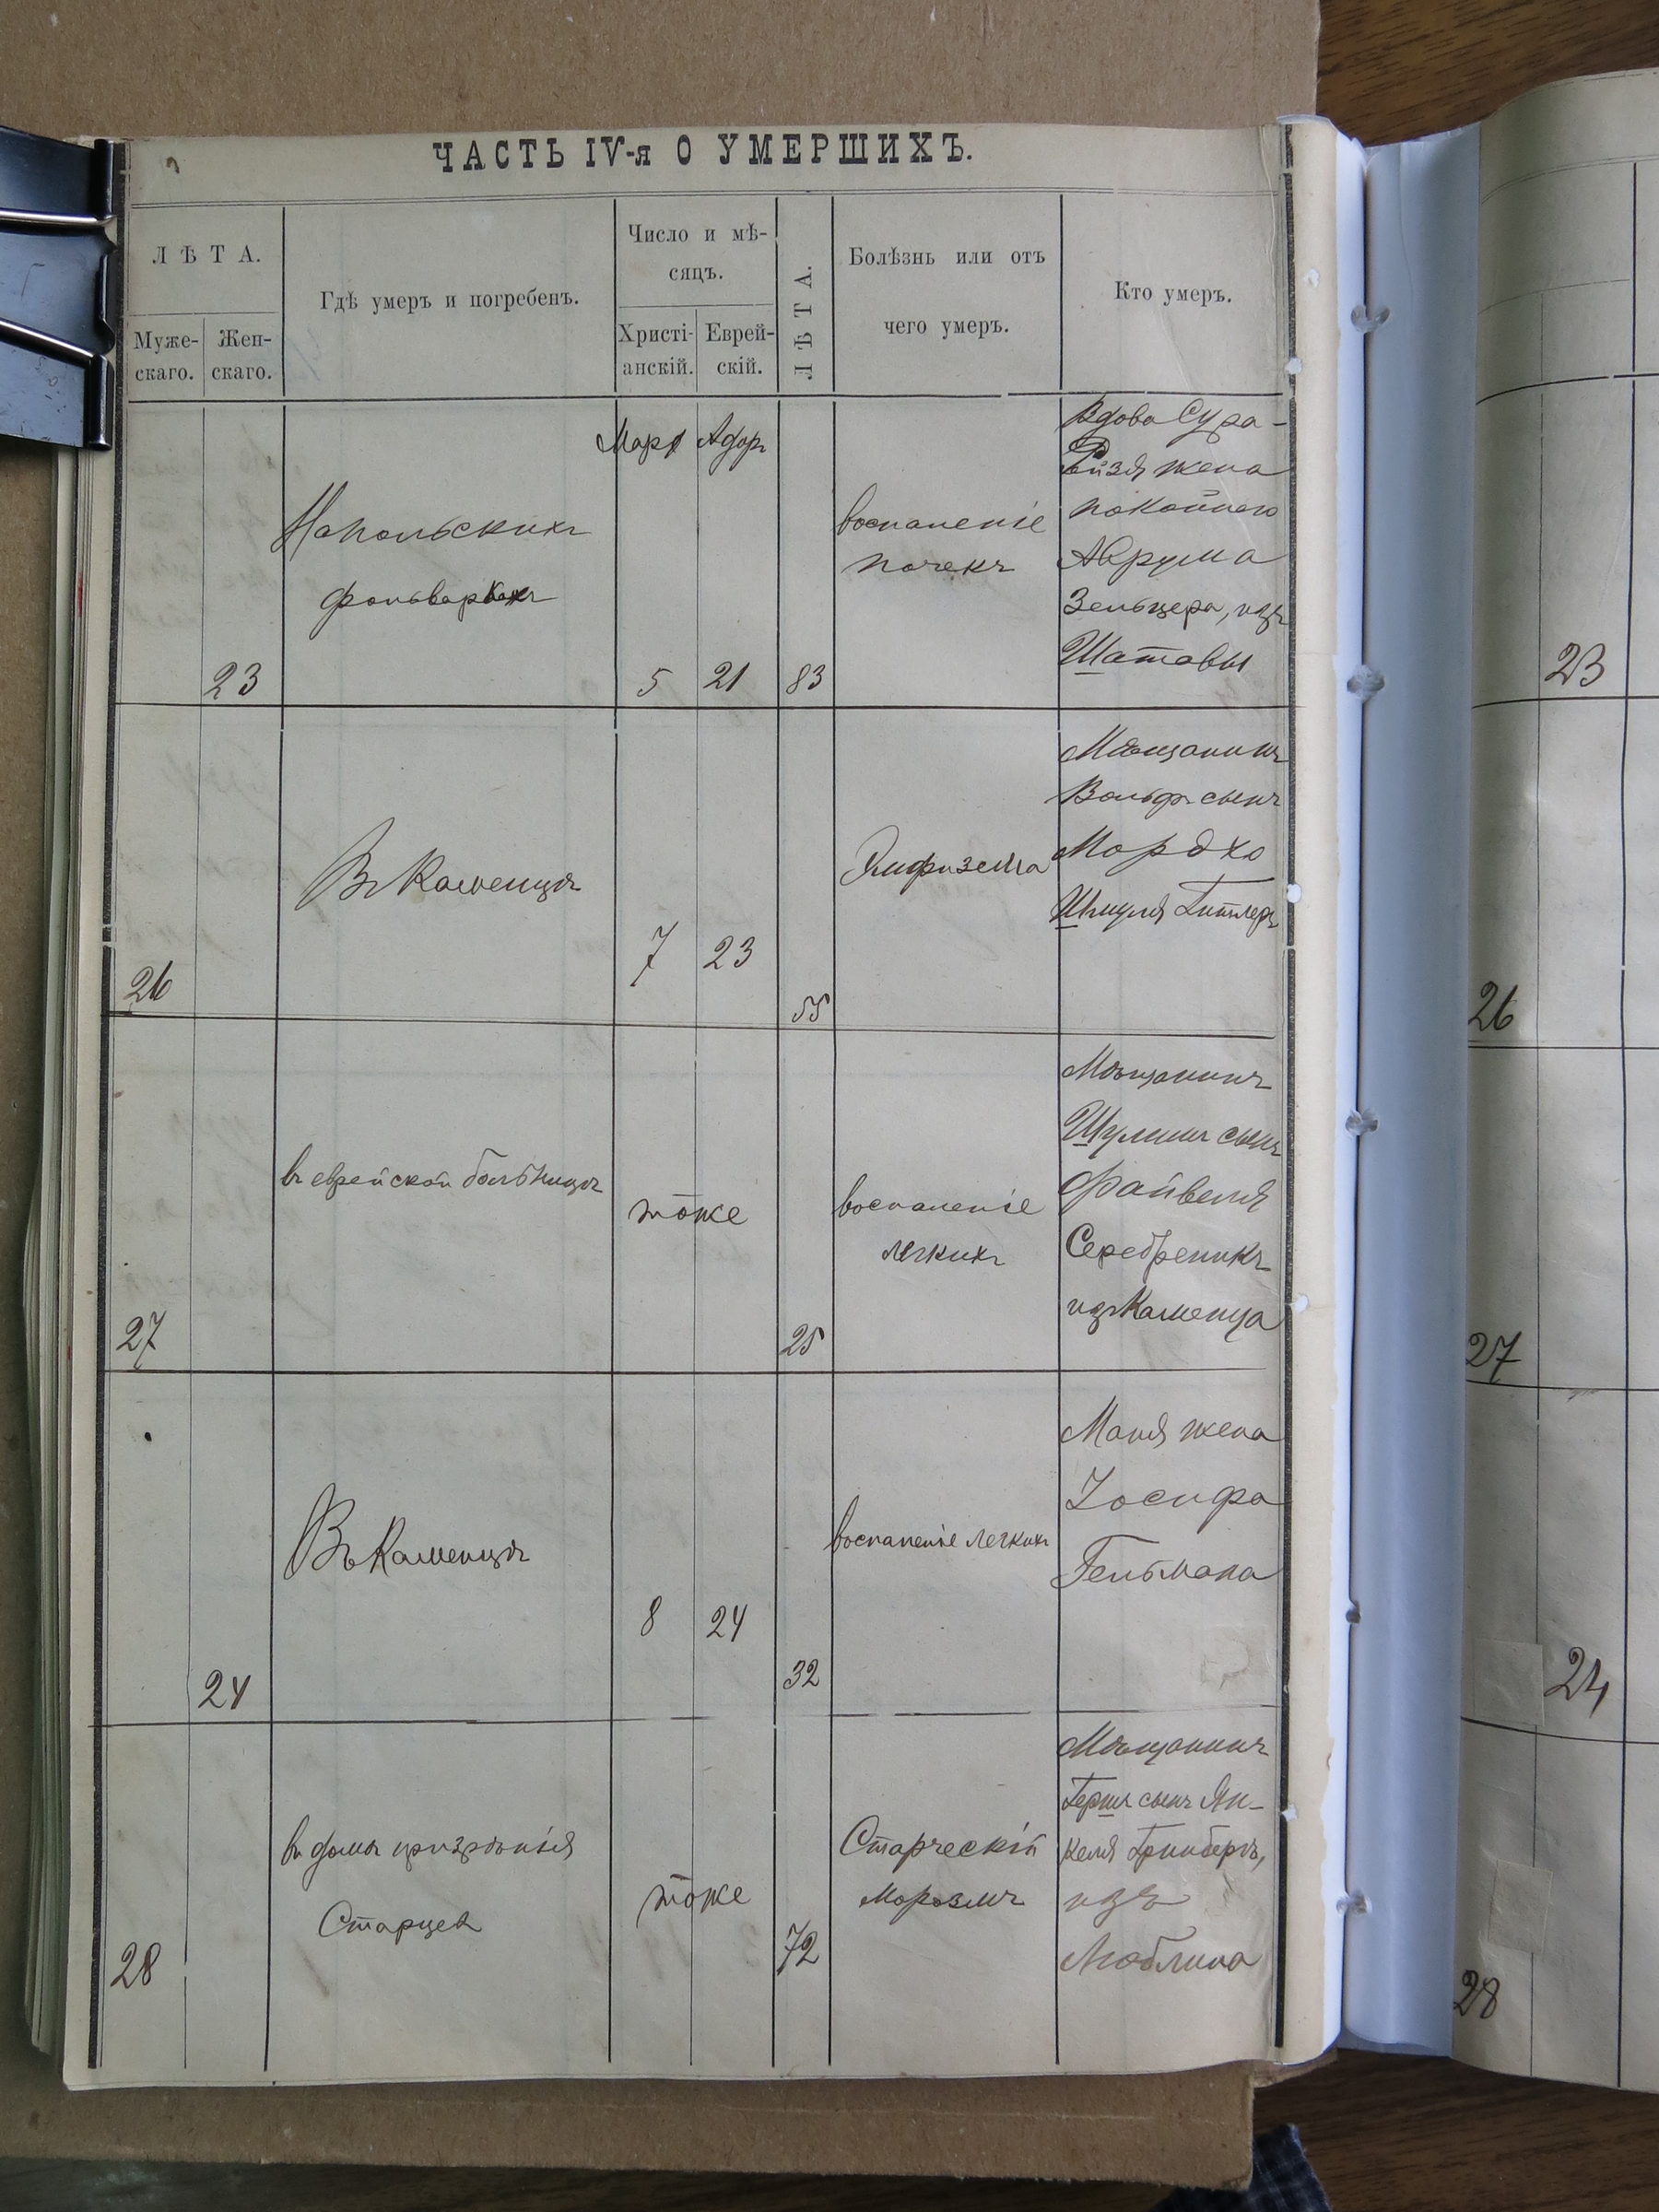 ЧАСТЬ IV-я О УМЕРШИХЪ.
ЛѢТА.
Муже-
скаго.
Жен-
скаго.
Гдѣ умеръ и погребенъ.
Число и мѣ-
сяцъ.
Христі-
анскій.
Еврей-
скій.
ЛѢТА.
Болѣзнь или отъ
чего умеръ.
Кто умеръ.
23
На польскихъ
фольваркахъ
Мартъ Адаръ
5 21 83
воспаленіе
почекъ
Вдова Сура-
Рейзя жена
покойного
Аврума
Зельцера, изъ
Шатавы
23
26
Въ Каменцѣ
7 23
55
Эмфизема
Мѣщанинъ
Вольфъ сынъ
Мордхо
Шмуля Гитлеръ
26
27
въ еврейской больницѣ
тоже
25
воспаленіе
легкихъ
Мѣщанинъ
Шулимъ сынъ
Файвеля
Серебреникъ
изъ Каменца
27
24
Въ Каменцѣ
8 24
32
воспаленіе легкихъ
Маня жена
Іосифа
Гельмана
24
28
въ домѣ призрѣнія
Старцевъ
тоже
72
Старческій
Морозмъ
Мѣщанинъ
Гершъ сынъ Ян-
келя Гринбергъ,
изъ
Люблина
28